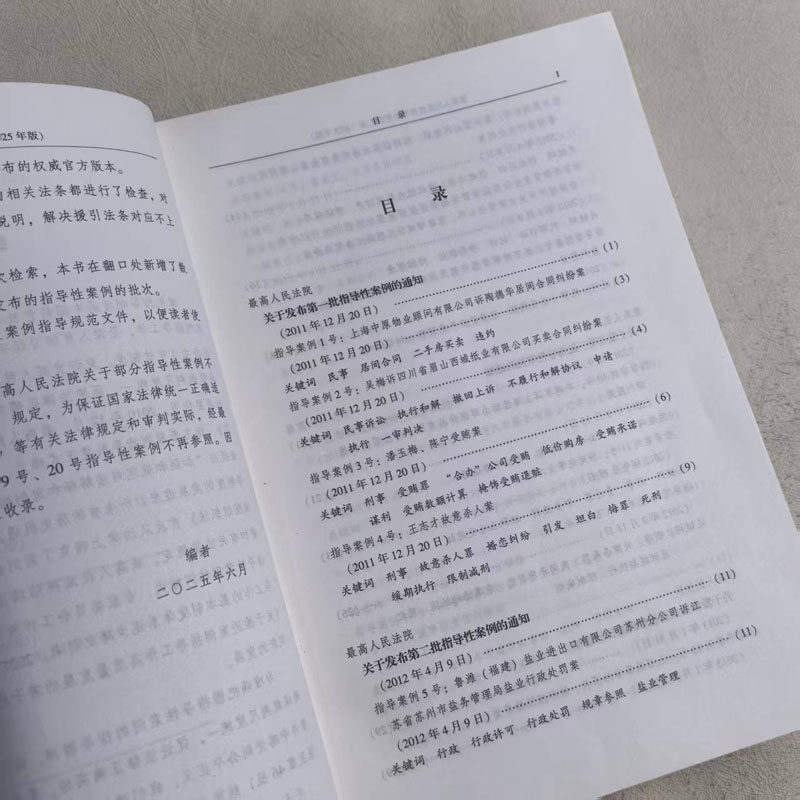 25 年版）
布的权威官方版本。
相关法条都进行了检查，对
说明，解决援引法条对应不上
次检索，本书在翻口处新增了数
发布的指导性案例的批次。
案例指导规范文件，以便读者使
高人民法院关于部分指导性案例不
规定，为保证国家法律统一正确适
，等有关法律规定和审判实际，经最
9 号、20 号指导性案例不再参照。因
收录。
编者
二〇二五年六月
目 录
1
目 录
最高人民法院
关于发布第一批指导性案例的通知
（2011 年 12 月 20 日） （1）
指导案例 1 号：上海中原物业顾问有限公司诉陶德华居间合同纠纷案
（2011 年 12 月 20 日） （3）
关键词 民事 居间合同 二手房买卖 违约
指导案例 2 号：吴梅诉四川省眉山西城纸业有限公司买卖合同纠纷案
（2011 年 12 月 20 日） （4）
关键词 民事诉讼 执行和解 撤回上诉 不履行和解协议 申请
执行 一审判决
指导案例 3 号：潘玉梅、陈宁受贿案
（2011 年 12 月 20 日） （6）
关键词 刑事 受贿罪 “合办”公司受贿 低价购房 受贿承诺
谋利 受贿数额计算 掩饰受贿退赃
指导案例 4 号：王志才故意杀人案
（2011 年 12 月 20 日） （9）
关键词 刑事 故意杀人罪 婚恋纠纷 引发 坦白 悔罪 死刑
缓期执行 限制减刑
最高人民法院
关于发布第二批指导性案例的通知
（2012 年 4 月 9 日） （11）
指导案例 5 号：鲁潍（福建）盐业进出口有限公司苏州分公司诉江
苏省苏州市盐务管理局盐业行政处罚案
（2012 年 4 月 9 日） （11）
关键词 行政 行政许可 行政处罚 规章参照 盐业管理